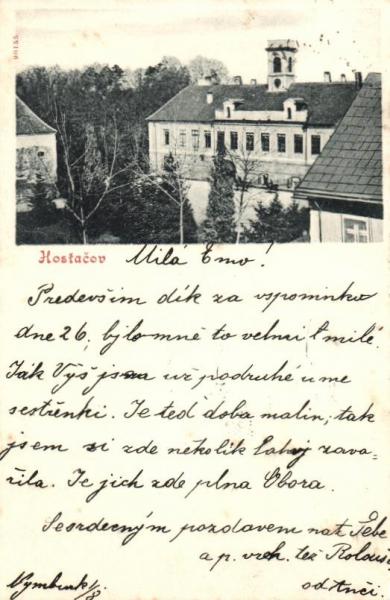 Hostačov
Milá Emo!
Predevšim dík za vspominku
dne 26, bylo mně to velmi milé
Ják Vyš jsa už podruhé u me
sestřenki. Je teď doba malin, tak
jsem si zde nekolik lahvj zava-
řila. Je jich zde plna Obora.
Se srdecným pozdavem nat Tebe
a p. vrch. tež
od Anči.
Nymburk 1/8